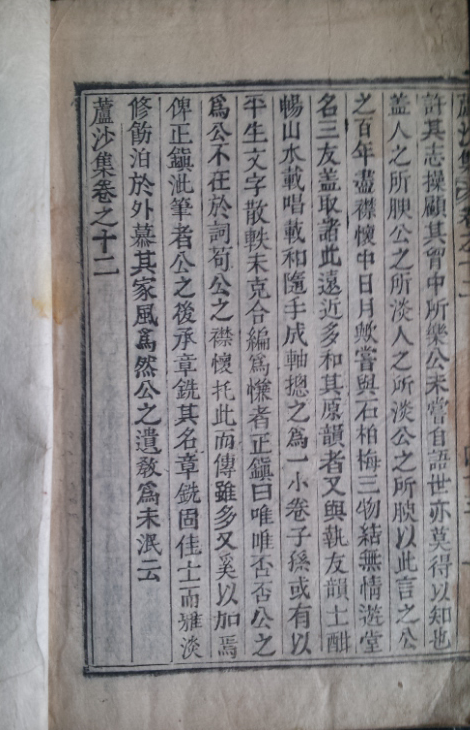 蘆沙集卷之十二
許其志操顧其胷中所樂公未嘗自語世亦莫得以知也
盖人之所腴公之所淡人之所淡公之所腴以此言之公
之百年盡襟懷中日月歟嘗與石柏梅三物結無情遊堂
名三友盖取諸此遠近多和其原韻者又與執友韻士酣
暢山水載唱載和隨手成軸摠之為一小卷子孫或有以
平生文字散軼未克合編為慊者正鎭曰唯唯否否公之
為公不在於詞苟公之襟懷托此而傳雖多又奚以加焉
俾正鎭泚筆者公之後承章銑其名章銑固佳士而雅淡
修飭泊於外慕其家風爲然公之遺敎爲未泯云
蘆沙集卷之十二